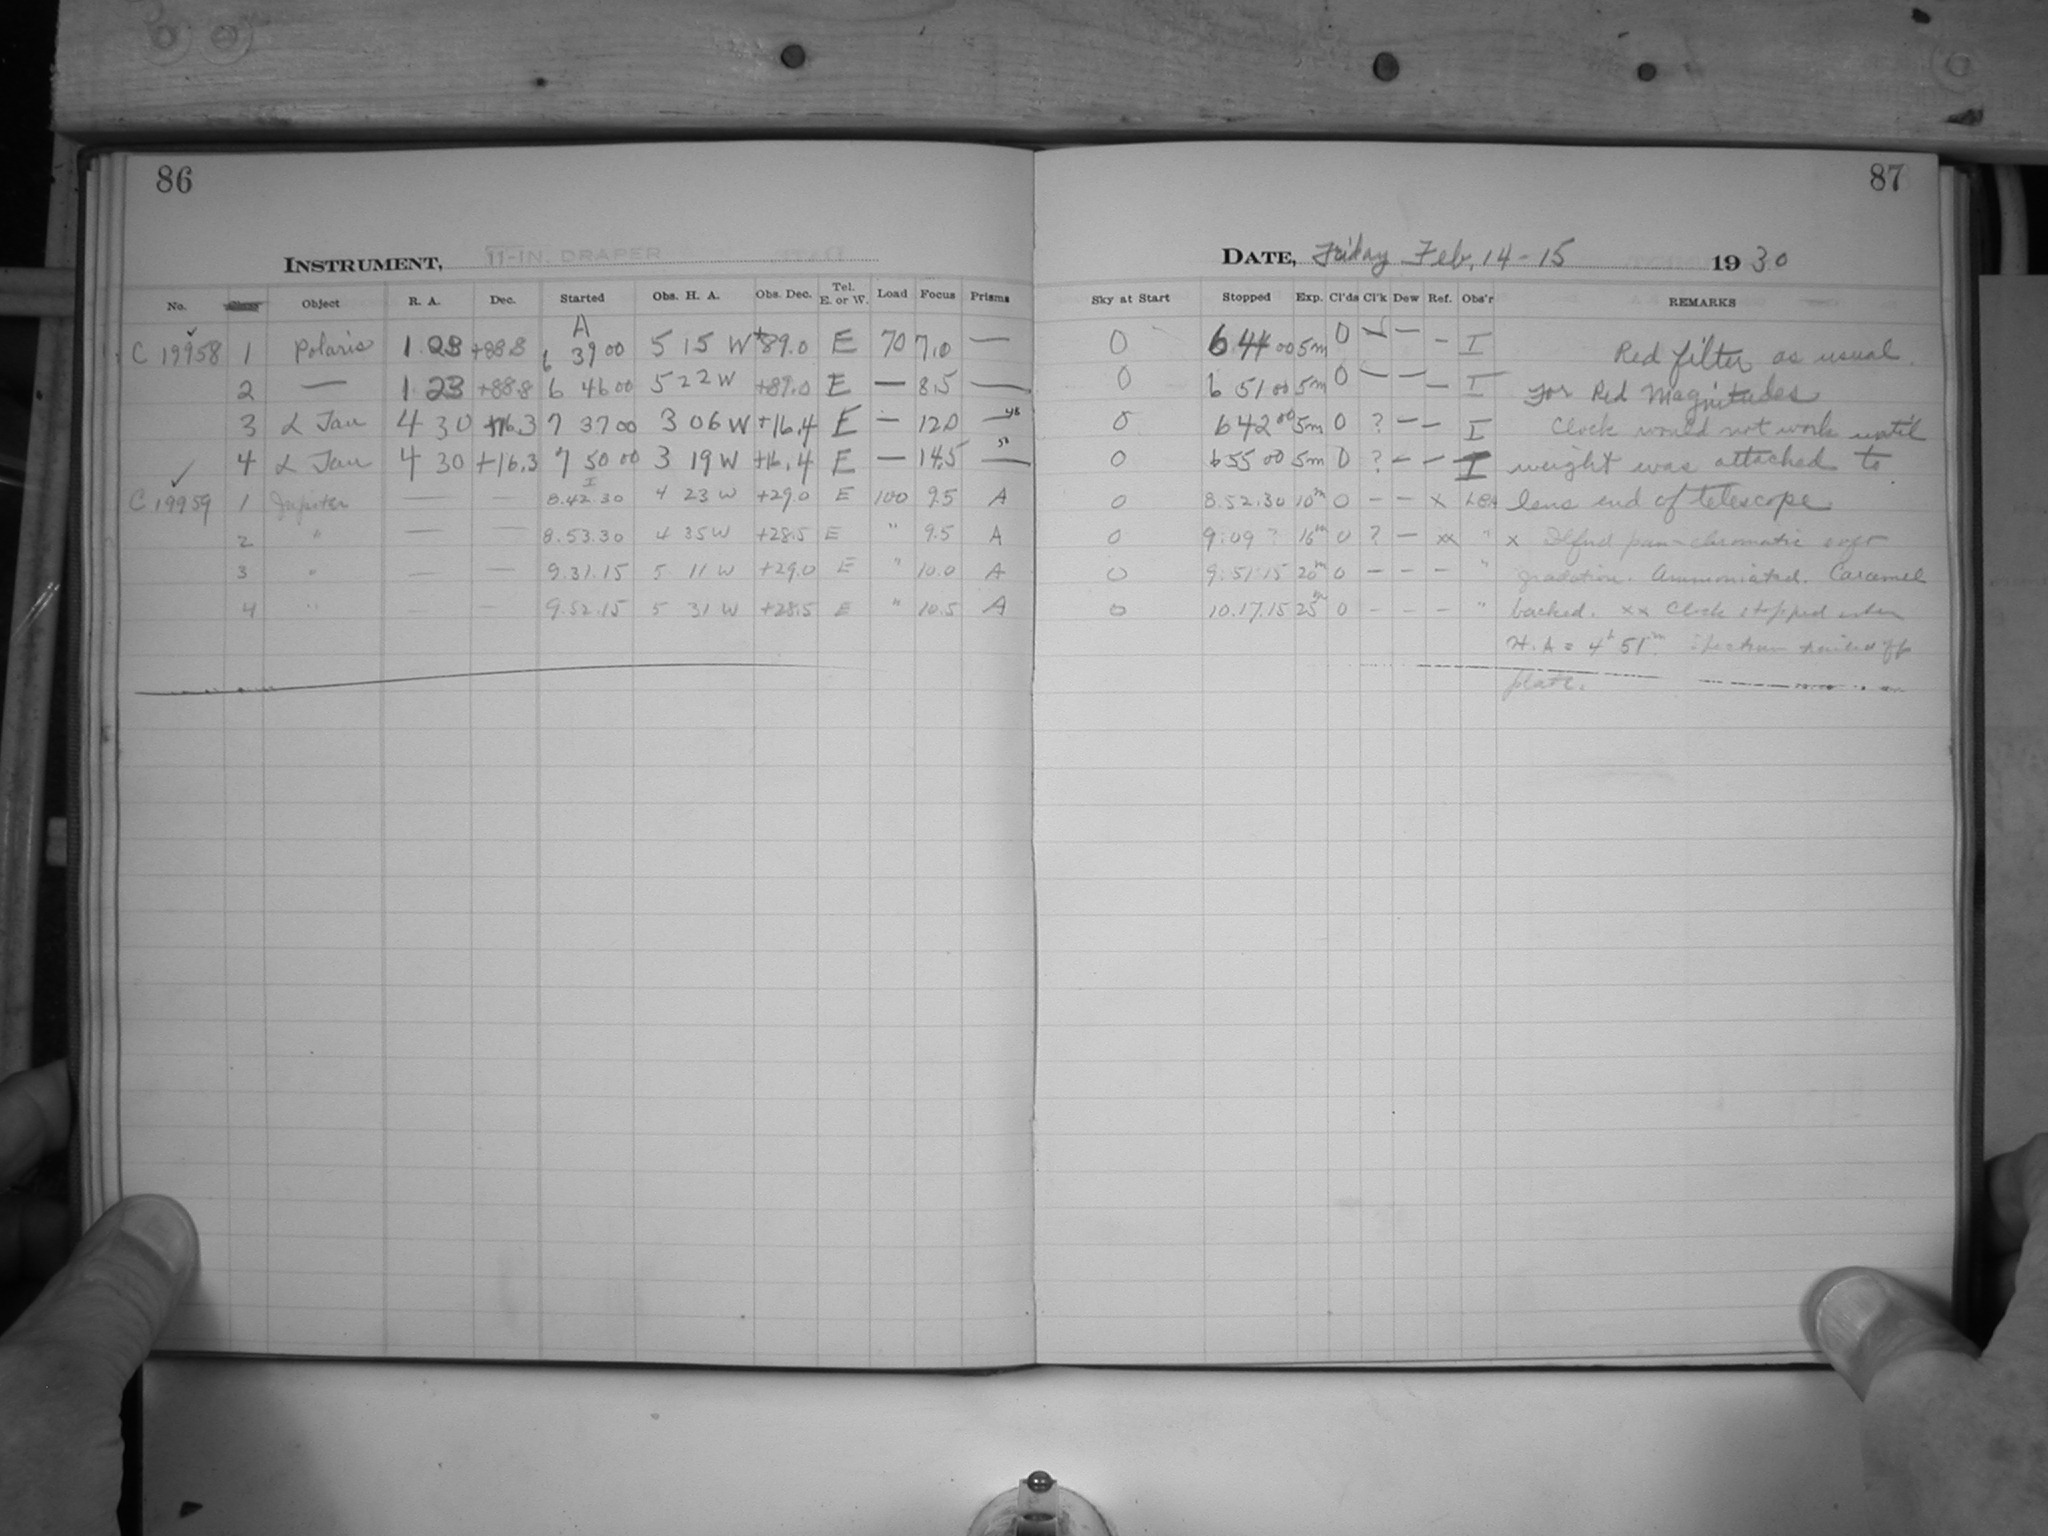 86
87
INSTRUMENT, 11-IN. DRAPER
DATE, Friday Feb. 14-15 1930
No. Class Object R. A. Dec. Started Obs. H. A. Obs. Dec. Tel. E. or W. Load Focus Prisms Sky at Start Stopped Exp. Cl'ds Cl'k Dew Ref. Obs'r REMARKS
A
C 19958 1 Polaris 1 23 +88.8 6 39 00 5 15 W +89.0 E 70 7.0 — 0 6 44 00 5m 0 — — — I Red filter as usual.
2 — 1 23 +88.8 6 46 00 5 22 W +89.0 E — 8.5 — 0 6 51 00 5m 0 — — — I For Red Magnitudes
3 α Tau 4 30 +16.3 7 37 00 3 06 W +16.4 E — 12.0 — 0 6 42 00 5m 0 ? — — I Clock would not work until
4 α Tau 4 30 +16.3 7 50 00 3 19 W +16.4 E — 14.5 — 0 6 55 00 5m 0 ? — — I weight was attached to
I
C 19959 1 Jupiter — — 8.42.30 4 23 W +29.0 E 100 9.5 A 0 8.52.30 10m 0 — — x lens end of telescope
2 " — — 8.53.30 4 35 W +28.5 E " 9.5 A 0 9:09 ? 16m 0 ? — xx " x Ilford pan-chromatic soft
3 " — — 9.31.15 5 11 W +29.0 E " 10.0 A 0 9:51:15 20m 0 — — — " gradation. Ammoniated. Caramel
4 " — — 9.52.15 5 31 W +28.5 E " 10.5 A 0 10.17.15 25m 0 - - - " backed. xx Clock stopped when
H.A = 4h 51m. Spectrum trailed off
plate.